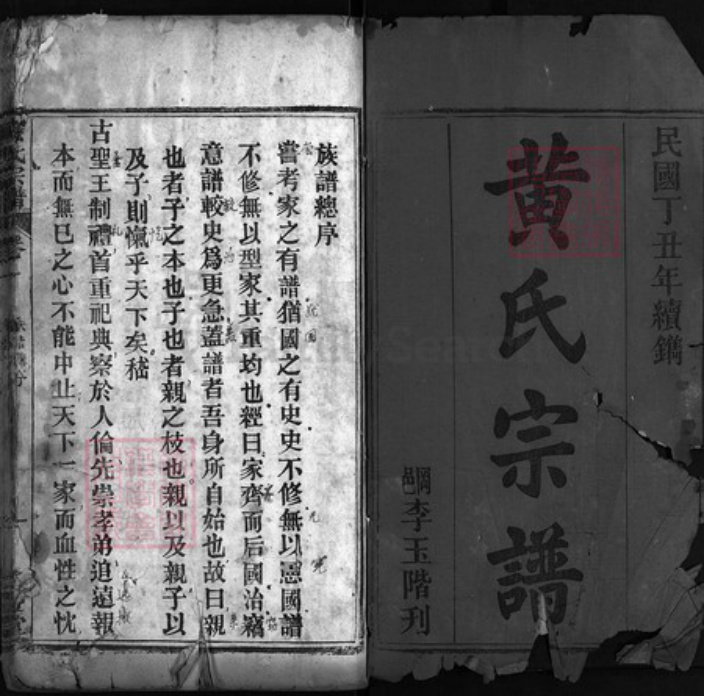 民國丁丑年續鐫
黃氏宗譜
岡邑李玉階刋
族譜總序
嘗考家之有譜猶國之有史史不修無以憲國譜
不修無以型家其重均也經曰家齊而后國治竊
意譜較史爲更急蓋譜者吾身所自始也故曰親
也者子之本也子也者親之枝也親以及親子以
及子則愾乎天下矣稽
古聖王制禮首重祀典察於人倫先崇孝弟追遠報
本而無已之心不能中止天下一家而血性之忱